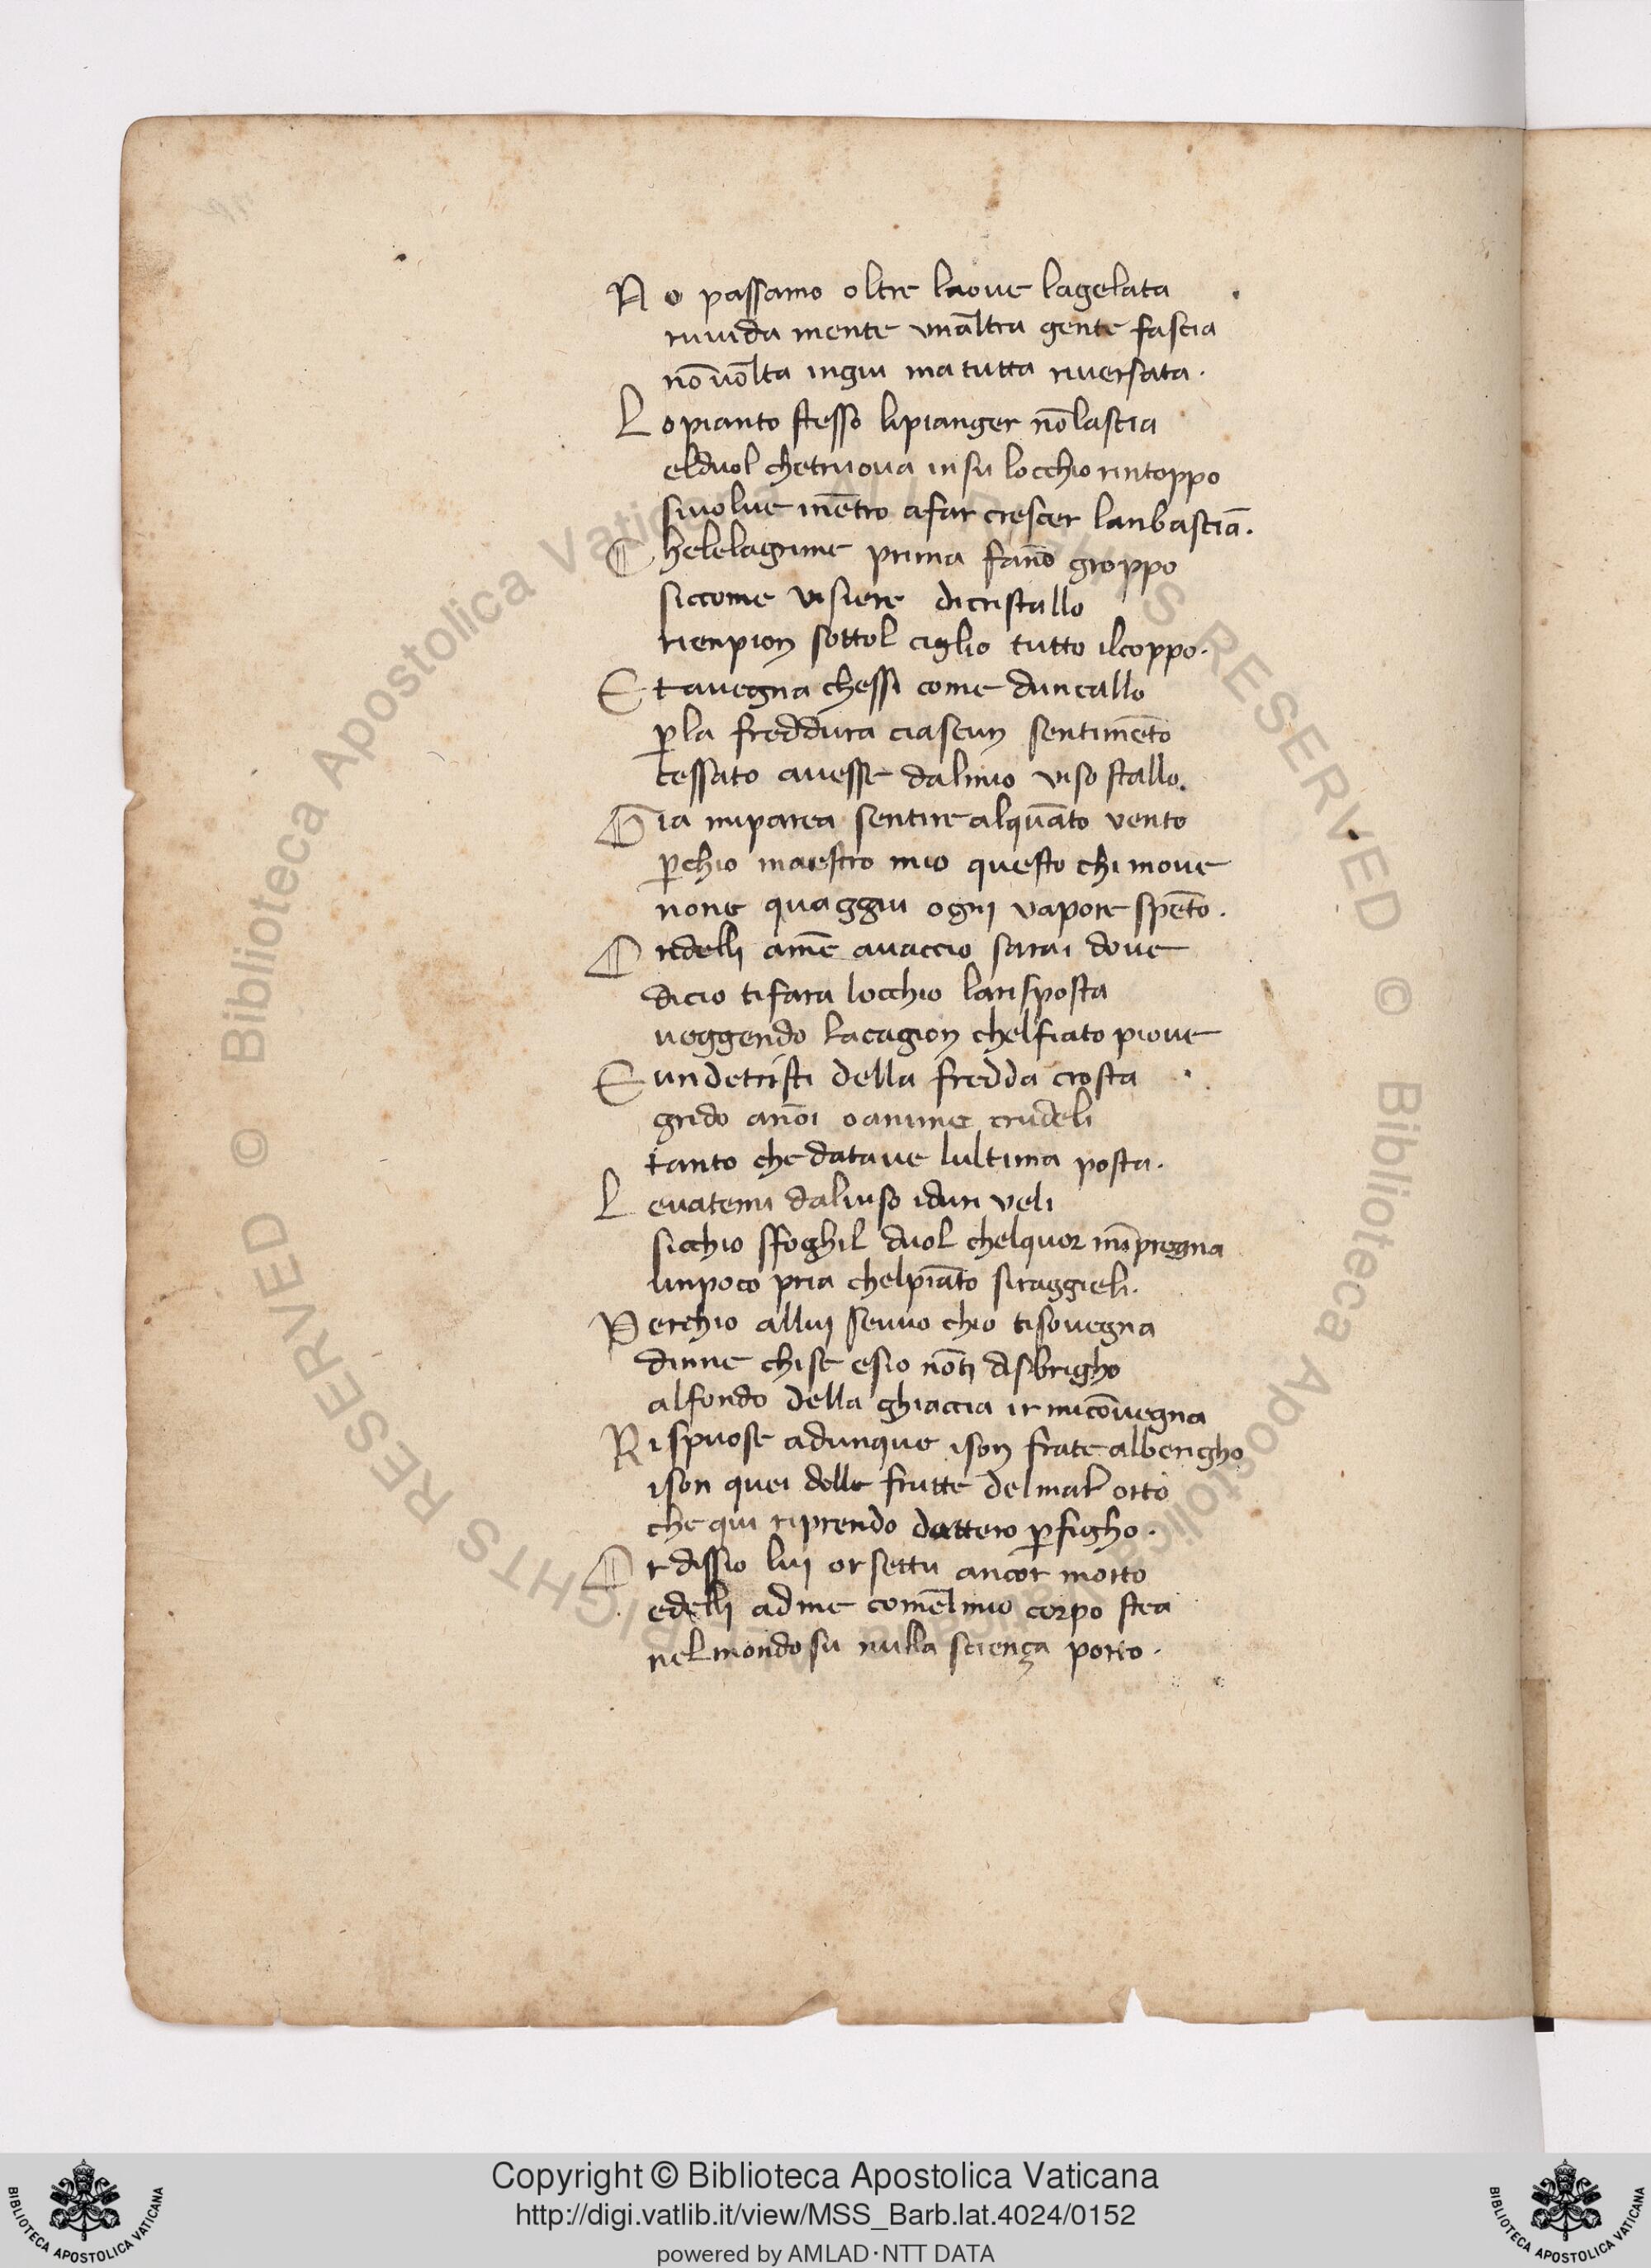 No passamo oltre laove lagelata
ruuida mente vnāltra gente fascia
nōuōlta ingiu ma tutta riuersata.
Lo pianto stesso lipianger nōlascia
elduol chetruova in su locchio rintoppo
siuolue īnētro afar crescer lanbasciā.
Chelelagrime prima fanō groppo
siccome visiere dicristallo
rienpion sottol ciglio tutto ilcoppo.
Et auegna chessi come duncallo
ꝑla freddura ciascun sentimēto
cessato auesse dalmio viso stallo.
Gia miparea sentire alquāto vento
ꝑchio maestro mio questo chi moue
none quaggiu ogni vapore spēto.
Ordelli amē auaccio sarai doue
dicio tifara locchio larisposta
ueggendo lacagion chelfiato pioue
E undetristi della fredda crosta
grido anōi oanime crudeli
tanto che dataue lultima posta.
Leuatemi daluiso iduri veli
sicchio sfoghil duol chelquor mīpregna
unpoco pria chelpiāto siraggieli.
Perchio allui seuuo chio tisovegna
dimne chise esio nōti disbrigho
alfondo della ghiaccia ir micōuegna
Rispuose adunque ison frate alberigho
ison quei delle frutte delmal orto
che qui riprendo dattero ꝑfigho.
Or dissio lui or settu ancor morto
edelli ad me comēlmio corpo stea
nel mondo su nulla sciença porto.
Copyright © Biblioteca Apostolica Vaticana
http://digi.vatlib.it/view/MSS_Barb.lat.4024/0152
powered by AMLAD·NTT DATA
BIBLIOTECA APOSTOLICA VATICANA
BIBLIOTECA APOSTOLICA VATICANA